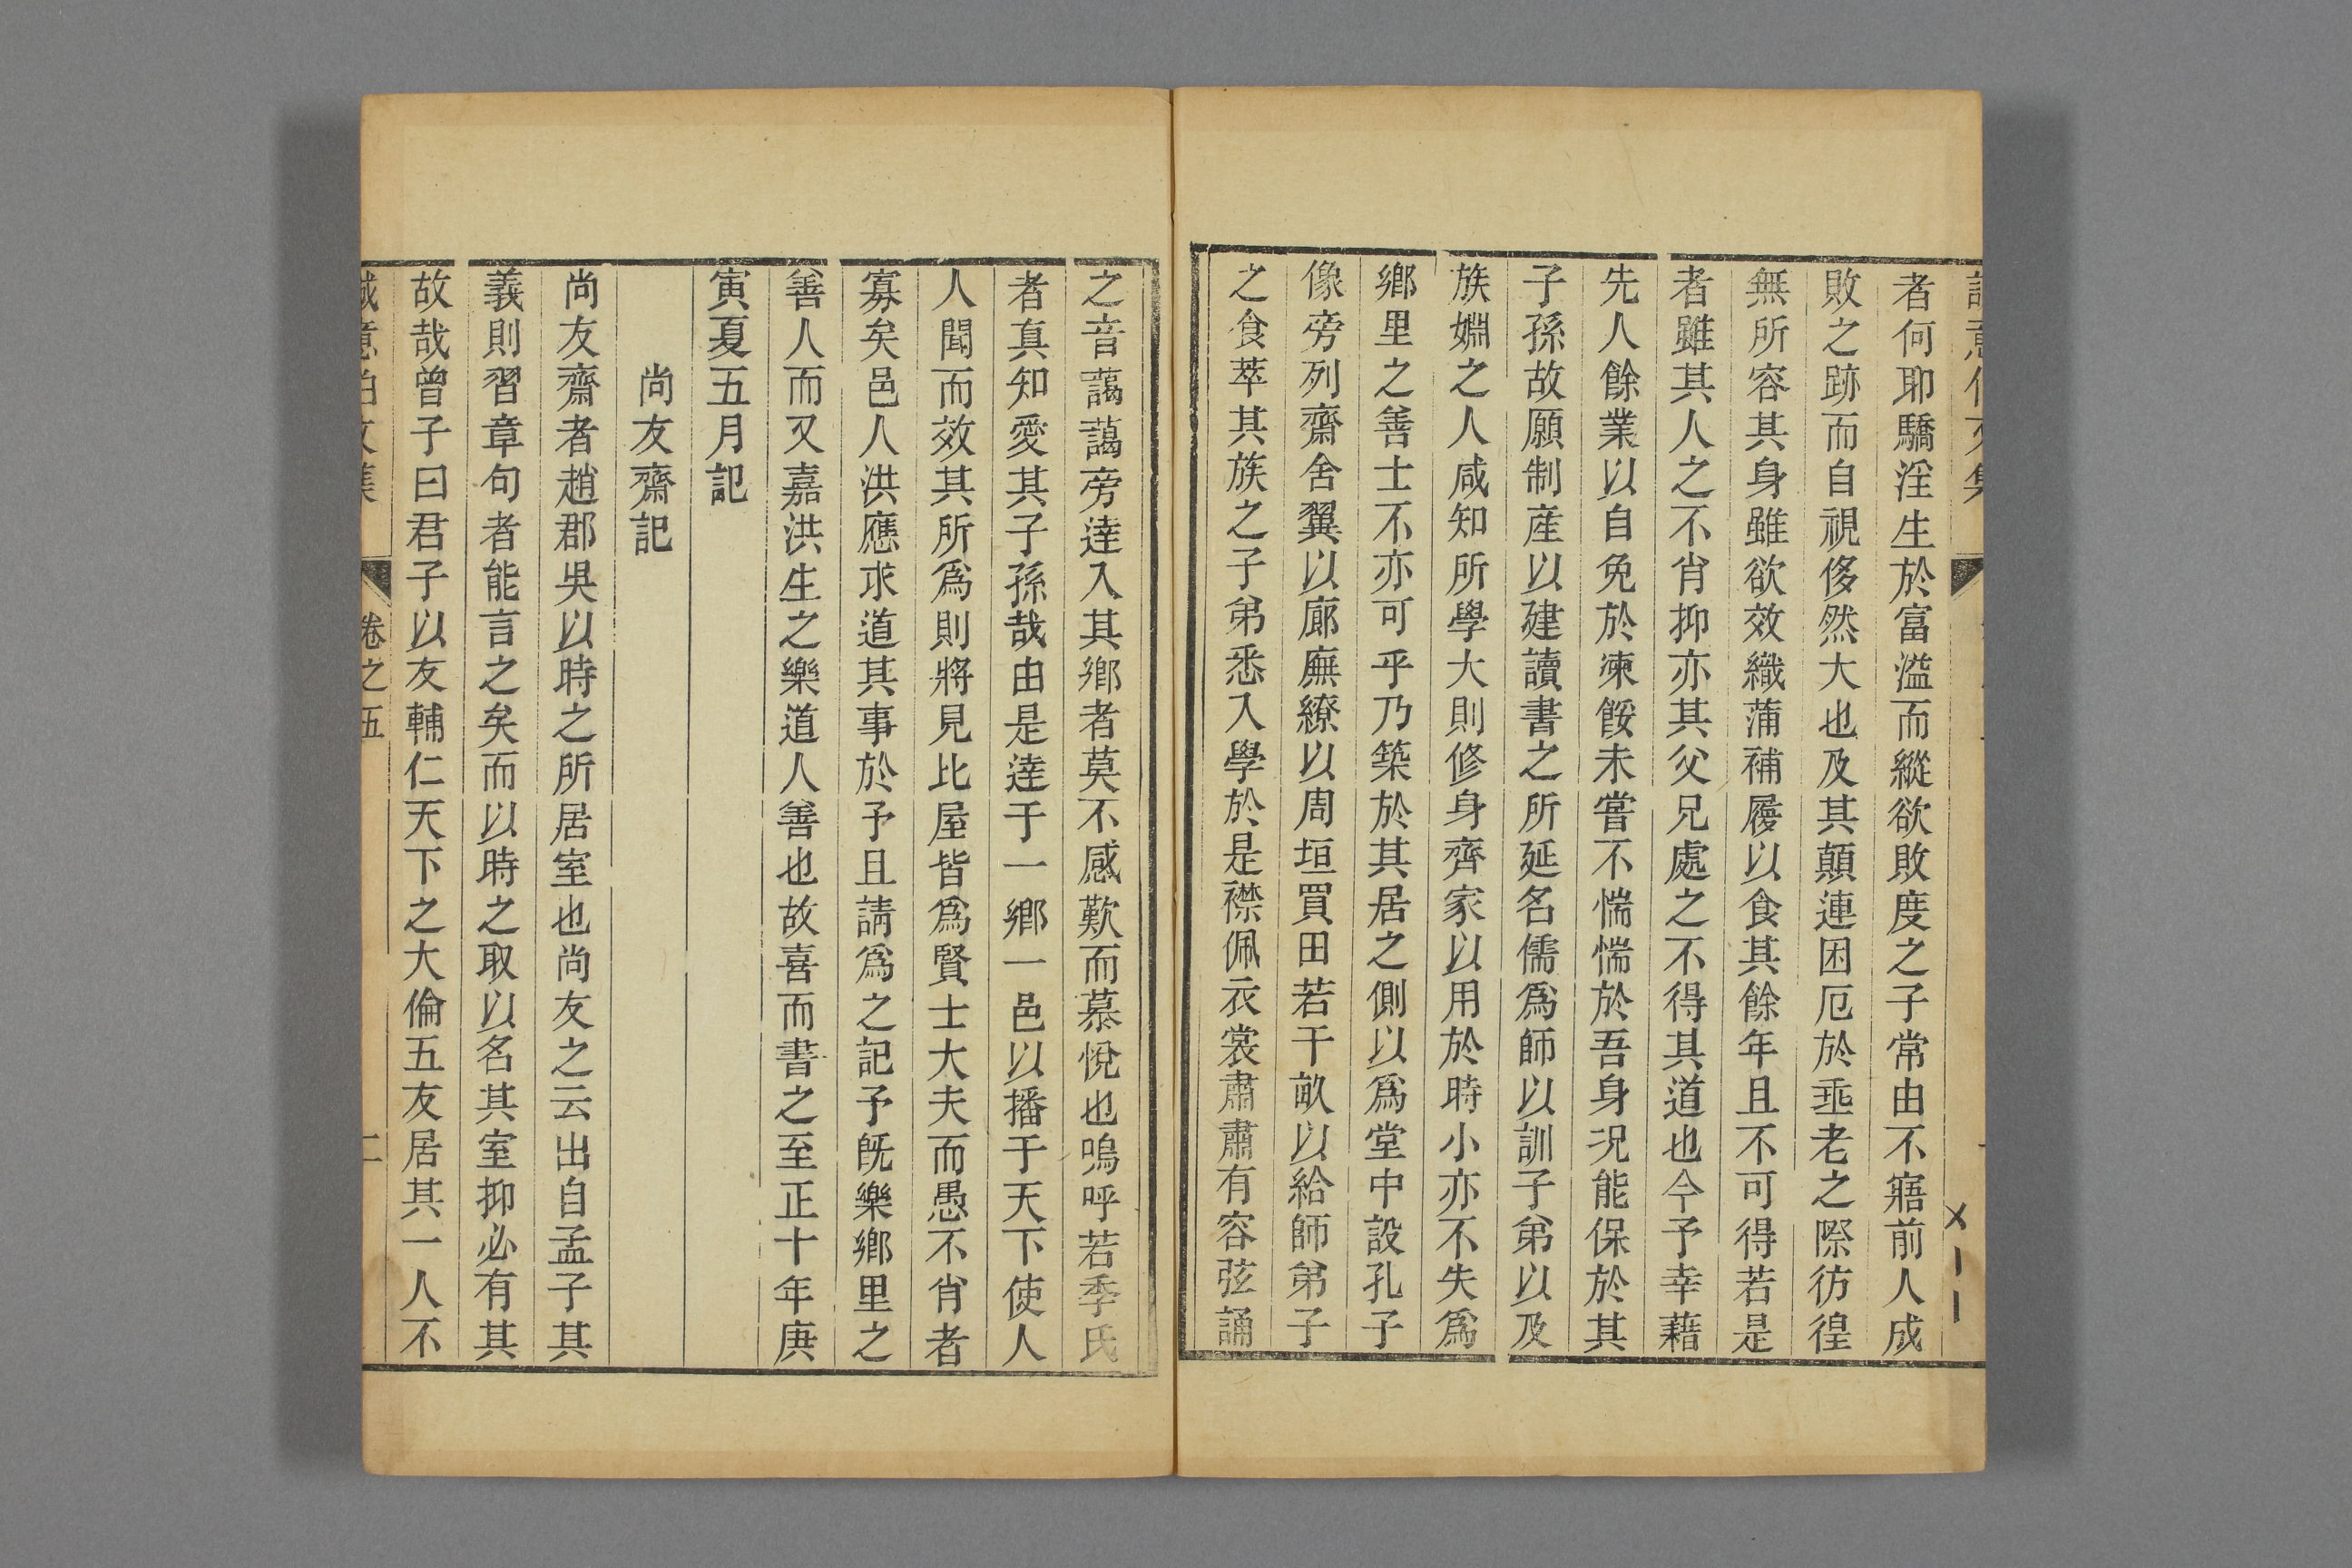 者何耶驕淫生於富溢而縱欲敗度之子常由不寤前人成
敗之跡而自視侈然大也及其顛連困厄於垂老之際彷徨
無所容其身雖欲效織蒲補履以食其餘年且不可得若是
者雖其人之不肖抑亦其父兄處之不得其道也今予幸藉
先人餘業以自免於凍餒未嘗不惴惴於吾身况能保於其
子孫故願制産以建讀書之所延名儒爲師以訓子弟以及
族婣之人咸知所學大則修身齊家以用於時小亦不失爲
鄉里之善士不亦可乎乃築於其居之側以爲堂中設孔子
像旁列齋舍翼以廊廡繚以周垣買田若干畝以給師弟子
之食萃其族之子弟悉入學於是襟佩衣裳肅肅有容弦誦
之音藹藹旁逹入其鄉者莫不感歎而慕悅也嗚呼若季氏
者真知愛其子孫哉由是逹于一鄉一邑以播于天下使人
人聞而效其所爲則將見比屋皆爲賢士大夫而愚不肖者
寡矣邑人洪應求道其事於予且請爲之記予旣樂鄉里之
善人而又嘉洪生之樂道人善也故喜而書之至正十年庚
寅夏五月記
尚友齋記
尚友齋者趙郡吳以時之所居室也尚友之云出自孟子其
義則習章句者能言之矣而以時之取以名其室抑必有其
故哉曾子曰君子以友輔仁天下之大倫五友居其一人不
誠意伯文集 卷之五 二